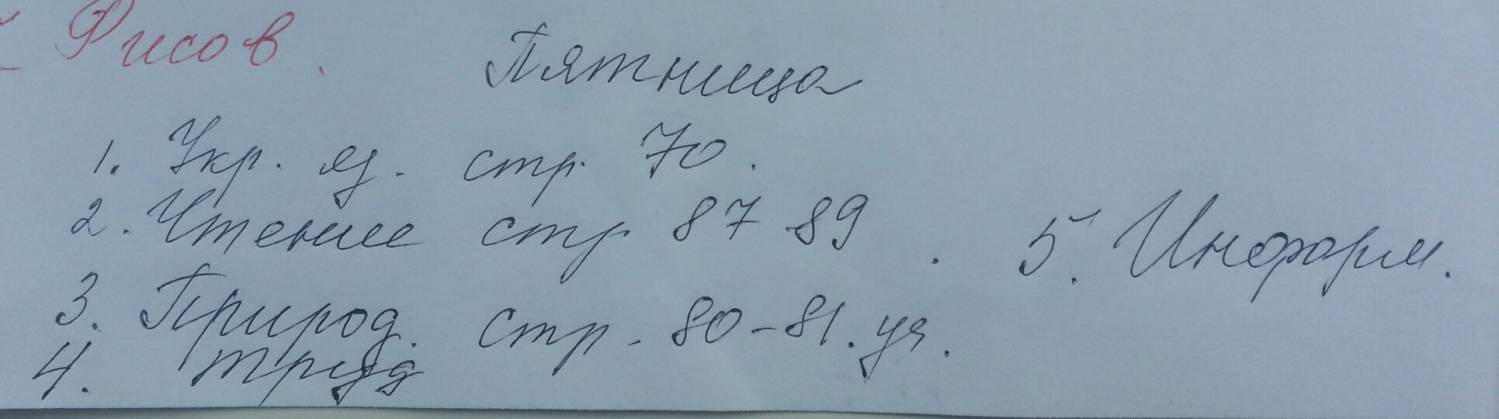 Рисов.
Пятница
1. Укр. яз. стр. 70.
2. Чтение стр 87-89.
5. Информ.
3. Природ. стр. 80-81. уч.
4. труд